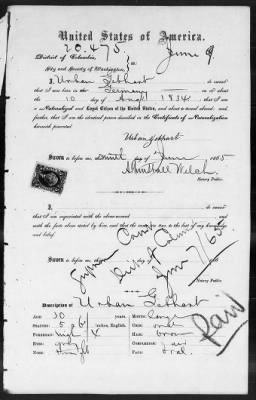 United States of America.
20.475
June 9
District of Columbia,
City and County of Washington, } ss
I, Urban Gebhart do swear
that I was born in Germany on
the 10 day of Augt 1834; that I am
a Naturalized and Loyal Citizen of the United States, and about to travel abroad; and
further, that I am the identical person described in the Certificate of Naturalization
herewith presented
Urban Gebhart
Sworn before me this day of June 1865
Welch
Notary Public.
I, do swear
that I am acquainted with the above-named and
with the facts above stated by him, and that the same are true to the best of my knowledge
and belief.
Sworn before me this day of
Notary Public.
June 7/65
Paid
Description of Urban Gebhart
Age: 30 years. Mouth: Large
Stature: 5 ft 6 inches, English. Chin:
Forehead: high Hair: brown
Eyes: Complexion: fair
Nose: Face: oval